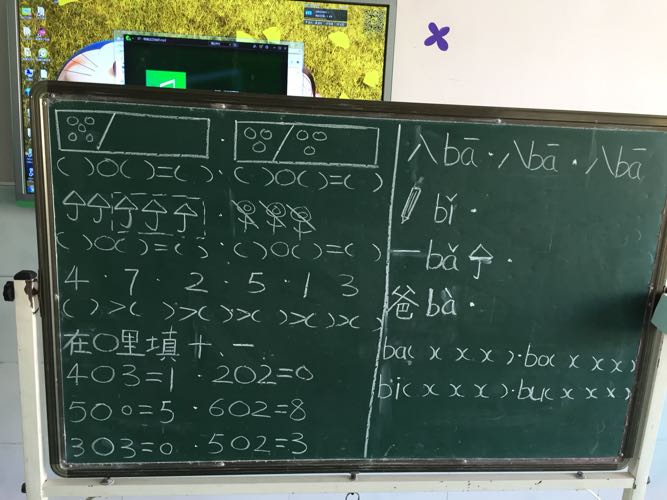 ( )○( )=( )·( )○( )=( )
( )○( )=( )·( )○( )=( )
4·7·2·5·1 3
( )>( )>( )>( )>( )>( )
在○里填十、一
4○3=1·2○2=0
5○0=5·6○2=8
3○3=0·5○2=3
八bā·八bā·八bā
bǐ·
一bǎ
爸bà·
ba(x x x)·bo(x x x)
bi(x x x)·bu(x x x)